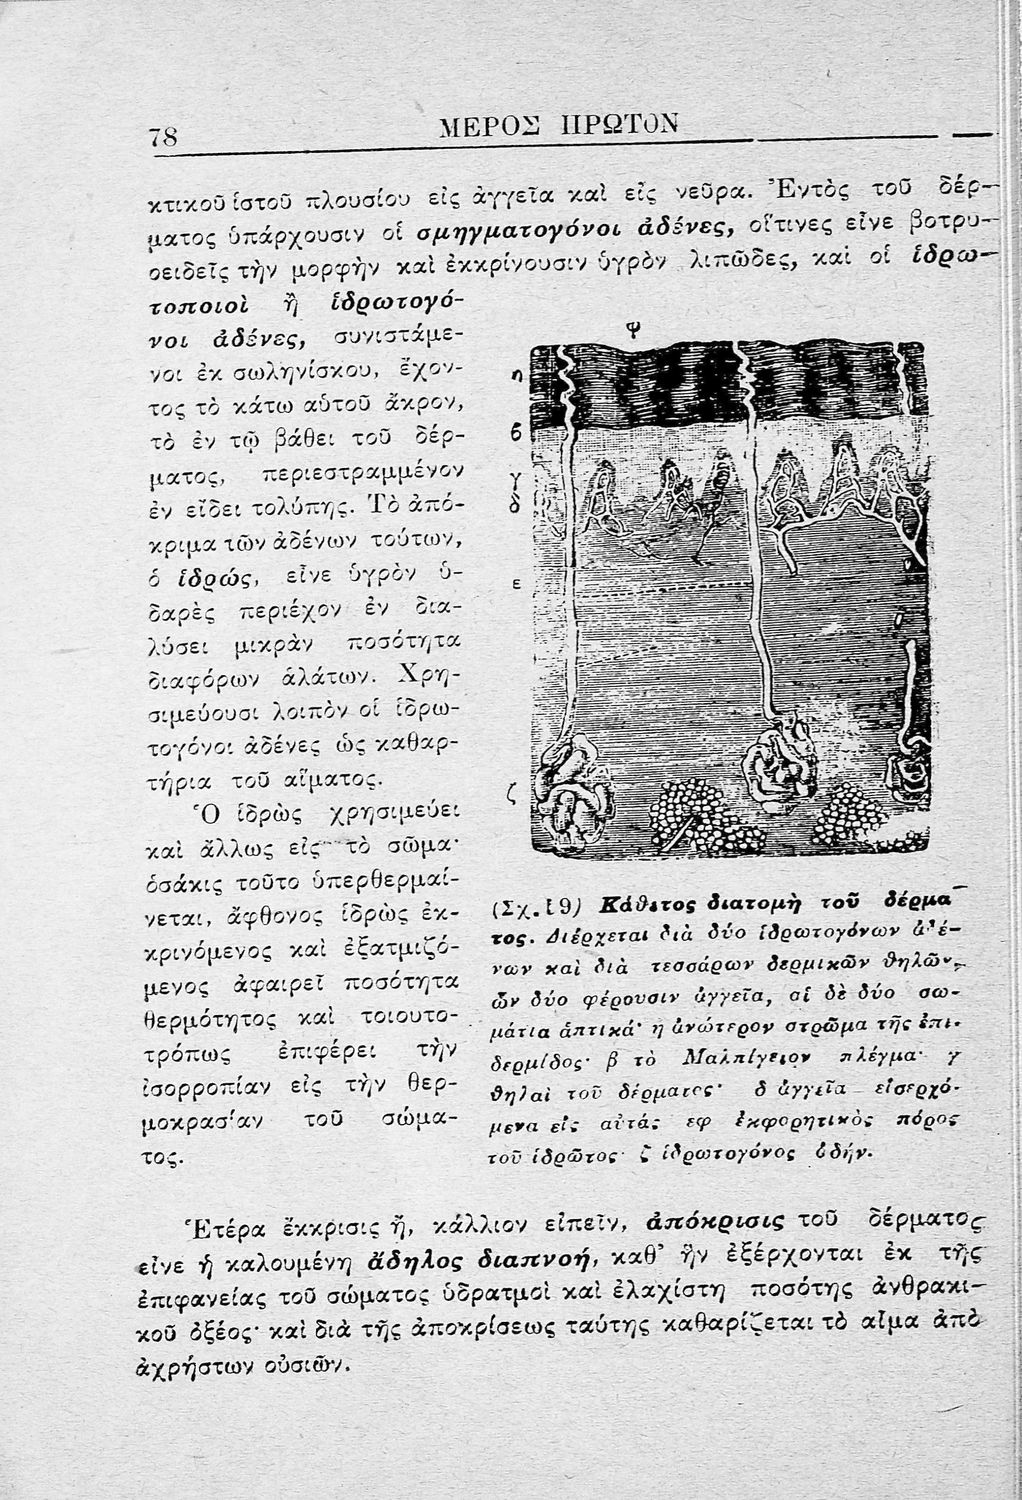 78
ΜΕΡΟΣ ΠΡΩΤΟΝ
κτικοῦ ἱστοῦ πλουσίου εἰς ἀγγεῖα καὶ εἰς νεῦρα. Ἐντὸς τοῦ δέρ-
ματος ὑπάρχουσιν οἱ σμηγματογόνοι ἀδένες, οἵτινες εἶνε βοτρυ-
οειδεῖς τὴν μορφὴν καὶ ἐκκρίνουσιν ὑγρὸν λιπῶδες, καὶ οἱ ἱδρω-
τοποιοὶ ἢ ἱδρωτογό-
νοι ἀδένες, συνιστάμε-
νοι ἐκ σωληνίσκου, ἔχον-
τος τὸ κάτω αὑτοῦ ἄκρον,
τὸ ἐν τῷ βάθει τοῦ δέρ-
ματος, περιεστραμμένον
ἐν εἴδει τολύπης. Τὸ ἀπό-
κριμα τῶν ἀδένων τούτων,
ὁ ἱδρώς, εἶνε ὑγρὸν ὑ-
δαρὲς περιέχον ἐν δια-
λύσει μικρὰν ποσότητα
διαφόρων ἁλάτων. Χρη-
σιμεύουσι λοιπὸν οἱ ἱδρω-
τογόνοι ἀδένες ὡς καθαρ-
τήρια τοῦ αἵματος.
Ὁ ἱδρὼς χρησιμεύει
καὶ ἄλλως εἰς τὸ σῶμα·
ὁσάκις τοῦτο ὑπερθερμαί-
νεται, ἄφθονος ἱδρὼς ἐκ-
κρινόμενος καὶ ἐξατμιζό-
μενος ἀφαιρεῖ ποσότητα
θερμότητος καὶ τοιουτο-
τρόπως ἐπιφέρει τὴν
ἰσορροπίαν εἰς τὴν θερ-
μοκρασίαν τοῦ σώμα-
τος.
φ
η
β
γ
δ
ε
ζ
(Σχ. 19) Κάθετος διατομὴ τοῦ δέρμα
τος. Διέρχεται διὰ δύο ἱδρωτογόνων ἀδέ-
νων καὶ διὰ τεσσάρων δερμικῶν θηλῶν,
ὧν δύο φέρουσιν ἀγγεῖα, αἱ δὲ δύο σω-
μάτια ἁπτικά· η ἀνώτερον στρῶμα τῆς ἐπι-
δερμίδος· β τὸ Μαλπίγειον πλέγμα· γ
θηλαὶ τοῦ δέρματος· δ ἀγγεῖα εἰσερχό-
μενα εἰς αὐτάς εφ ἐκφορητικὸς πόρος
τοῦ ἱδρῶτος· ζ ἱδρωτογόνος ἀδήν.
Ἑτέρα ἔκκρισις ἤ, κάλλιον εἰπεῖν, ἀπόκρισις τοῦ δέρματος
εἶνε ἡ καλουμένη ἄδηλος διαπνοή, καθ' ἣν ἐξέρχονται ἐκ τῆς
ἐπιφανείας τοῦ σώματος ὑδρατμοὶ καὶ ἐλαχίστη ποσότης ἀνθρακι-
κοῦ ὀξέος· καὶ διὰ τῆς ἀποκρίσεως ταύτης καθαρίζεται τὸ αἷμα ἀπὸ
ἀχρήστων οὐσιῶν.